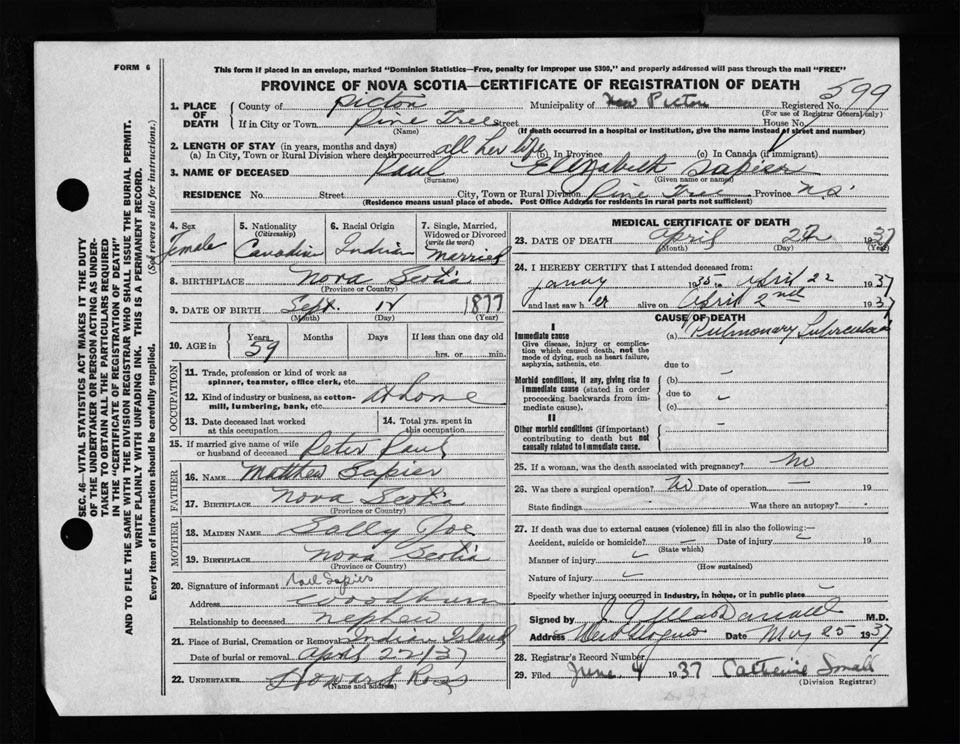 FORM 6
This form if placed in an envelope, marked "Dominion Statistics—Free, penalty for improper use $300," and properly addressed will pass through the mail "FREE"
PROVINCE OF NOVA SCOTIA—CERTIFICATE OF REGISTRATION OF DEATH
SEC. 46—VITAL STATISTICS ACT MAKES IT THE DUTY
OF THE UNDERTAKER OR PERSON ACTING AS UNDER-
TAKER TO OBTAIN ALL THE PARTICULARS REQUIRED
IN THE "CERTIFICATE OF REGISTRATION OF DEATH"
AND TO FILE THE SAME WITH THE DIVISION REGISTRAR WHO SHALL ISSUE THE BURIAL PERMIT.
WRITE PLAINLY WITH UNFADING INK. THIS IS A PERMANENT RECORD.
Every item of information should be carefully supplied. (See reverse side for instructions.)
1. PLACE OF DEATH County of Pictou Municipality of Pictou Registered No. 599
(For use of Registrar General only)
If in City or Town Pine Tree Street House No.
(Name) (If death occurred in a hospital or institution, give the name instead of street and number)
2. LENGTH OF STAY (in years, months and days)
(a) In City, Town or Rural Division where death occurred all her life (b) In Province (c) In Canada (if immigrant)
3. NAME OF DECEASED Paul Elizabeth Sapier
(Surname) (Given name or names)
RESIDENCE No. Street City, Town or Rural Division Pine Tree Province N.S.
(Residence means usual place of abode. Post Office Address for residents in rural parts not sufficient)
4. Sex Female
5. Nationality (Citizenship) Canadian
6. Racial Origin Indian
7. Single, Married, Widowed or Divorced (write the word) Married
8. BIRTHPLACE Nova Scotia
(Province or Country)
9. DATE OF BIRTH Sept. 1877
(Month) (Day) (Year)
10. AGE in Years 59 Months Days If less than one day old
hrs. or min.
OCCUPATION
11. Trade, profession or kind of work as spinner, teamster, office clerk, etc.
12. Kind of industry or business, as cotton-mill, lumbering, bank, etc. At home
13. Date deceased last worked at this occupation
14. Total yrs. spent in this occupation
15. If married give name of wife or husband of deceased Peter Paul
FATHER
16. NAME Matthew Sapier
17. BIRTHPLACE Nova Scotia
(Province or Country)
MOTHER
18. MAIDEN NAME Sally Joe
19. BIRTHPLACE Nova Scotia
(Province or Country)
20. Signature of informant Sapier
Address Woodburn
Relationship to deceased nephew
21. Place of Burial, Cremation or Removal Indian Island
Date of burial or removal April 22/37
22. UNDERTAKER Howard Ross
(Name and address)
MEDICAL CERTIFICATE OF DEATH
23. DATE OF DEATH April 1937
(Month) (Day) (Year)
24. I HEREBY CERTIFY that I attended deceased from:
1935 to April 22 1937
and last saw her alive on April 2nd 1937
CAUSE OF DEATH
I
Immediate cause (a) Pulmonary
Give disease, injury or complication which caused death, not the mode of dying, such as heart failure, asphyxia, asthenia, etc.
due to
Morbid conditions, if any, giving rise to immediate cause (stated in order proceeding backwards from immediate cause). (b)
due to
(c)
II
Other morbid conditions (if important) contributing to death but not causally related to immediate cause.
25. If a woman, was the death associated with pregnancy? No
26. Was there a surgical operation? No Date of operation — 19
State findings Was there an autopsy? -
27. If death was due to external causes (violence) fill in also the following:—
Accident, suicide or homicide? — Date of injury 19
(State which)
Manner of injury
(How sustained)
Nature of injury
Specify whether injury occurred in Industry, in home, or in public place
Signed by M.D.
Address Date May 25 1937
28. Registrar's Record Number
29. Filed June 4 1937 Catherine Small
(Division Registrar)